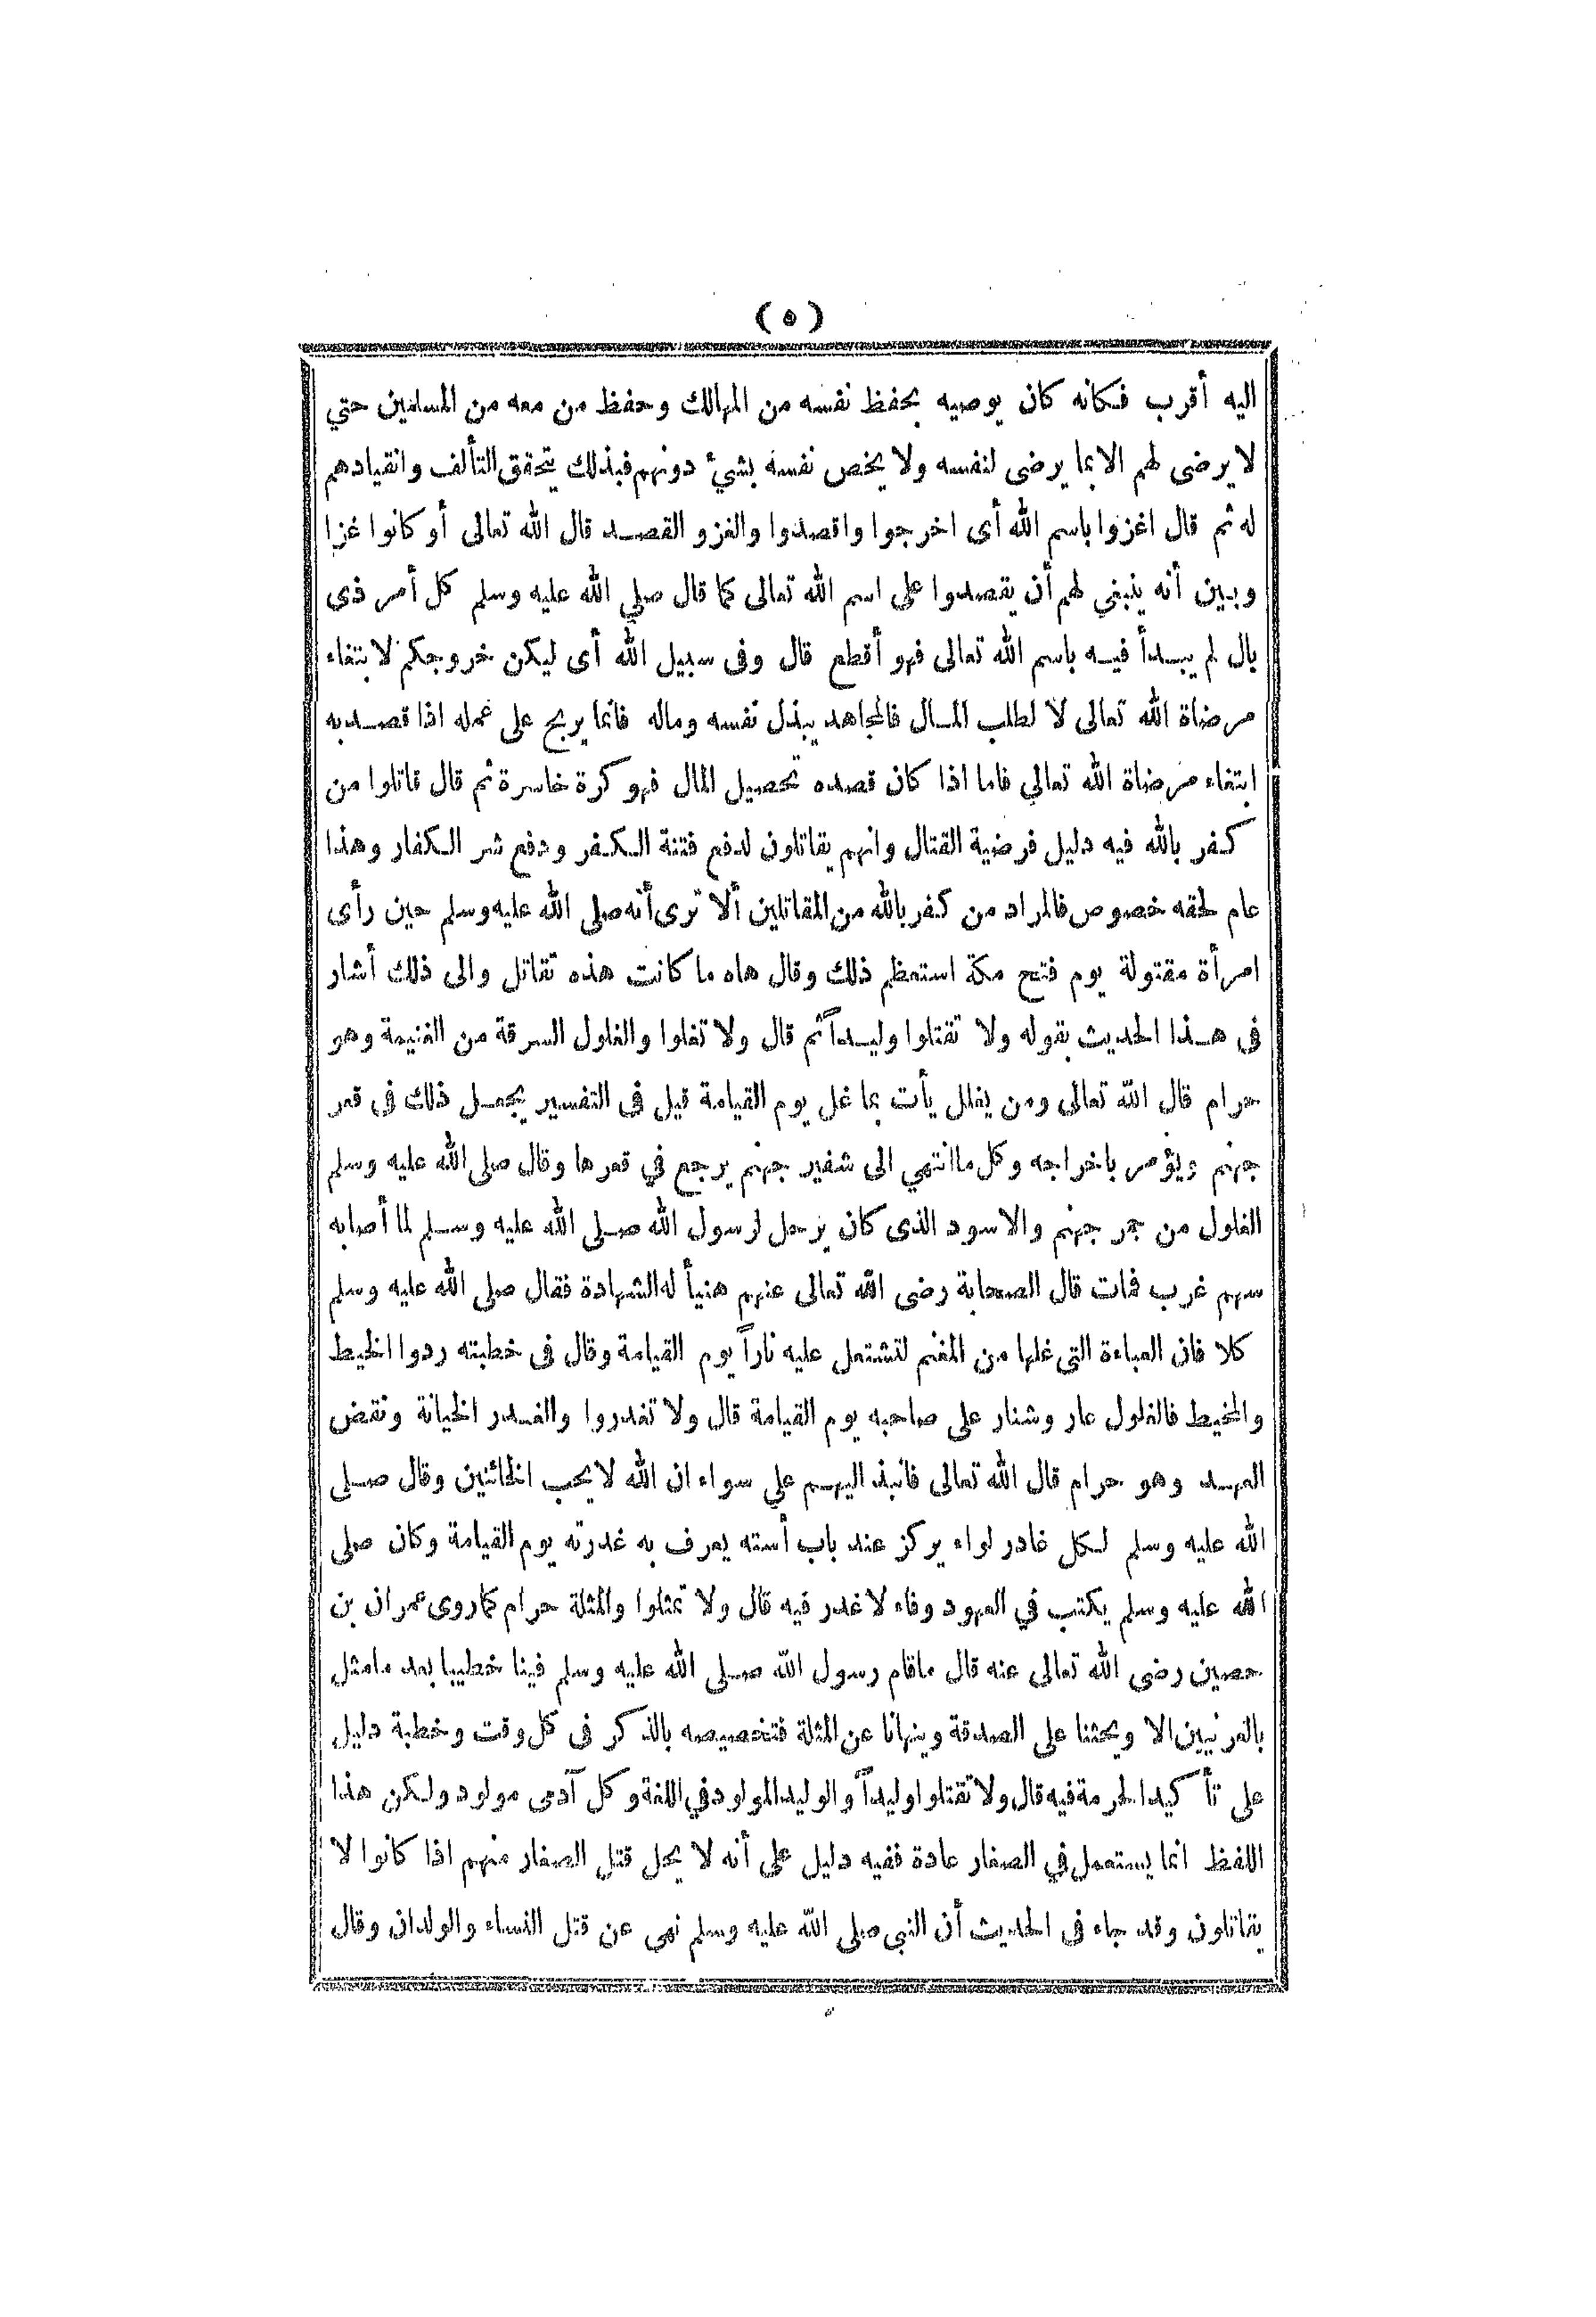 (٥)
اليه أقرب فكانه كان يوصيه بحفظ نفسه من المهالك وحفظ من معه من المسلمين حتي
لا يرضى لهم الا بما يرضى لنفسه ولا يخص نفسه بشئ دونهم فبذلك يتحقق التألف وانقيادهم
له ثم قال اغزوا باسم الله أى اخرجوا واقصدوا والغزو القصد قال الله تعالى أو كانوا غزا
وبين أنه ينبغي لهم أن يقصدوا على اسم الله تعالى كما قال صلي الله عليه وسلم كل أمر ذى
بال لم يبدأ فيه باسم الله تعالى فهو أقطع قال وفى سبيل الله أى ليكن خروجكم لابتغاء
مرضاة الله تعالى لا لطلب المال فالمجاهد يبذل نفسه وماله فانما يربح على عمله اذا قصد به
ابتغاء مرضاة الله تعالي فاما اذا كان قصده تحصيل المال فهو كرة خاسرة ثم قال قاتلوا من
كفر بالله فيه دليل فرضية القتال وانهم يقاتلون لدفع فتنة الكفر ودفع شر الكفار وهذا
عام لحقه خصوص فالمراد من كفر بالله من المقاتلين ألا ترى أنه صلى الله عليه وسلم حين رأى
امرأة مقتولة يوم فتح مكة استعظم ذلك وقال هاه ما كانت هذه تقاتل والى ذلك أشار
فى هذا الحديث بقوله ولا تقتلوا وليداً ثم قال ولا تغلوا والغلول السرقة من الغنيمة وهو
حرام قال الله تعالى ومن يغلل يأت بما غل يوم القيامة قيل فى التفسير يجعل ذلك فى قعر
جهنم ويؤمر باخراجه وكل ما انتهي الى شفير جهنم يرجع في قعرها وقال صلى الله عليه وسلم
الغلول من جمر جهنم والاسود الذى كان يرحل لرسول الله صلى الله عليه وسلم لما أصابه
سهم غرب فمات قال الصحابة رضى الله تعالى عنهم هنيأ له الشهادة فقال صلى الله عليه وسلم
كلا فان العباءة التى غلها من المغنم لتشتعل عليه ناراً يوم القيامة وقال فى خطبته ردوا الخيط
والمخيط فالغلول عار وشنار على صاحبه يوم القيامة قال ولا تغدروا والغدر الخيانة ونقض
العهد وهو حرام قال الله تعالى فانبذ اليهم علي سواء ان الله لا يحب الخائنين وقال صلى
الله عليه وسلم لكل غادر لواء يركز عند باب أسته يعرف به غدرته يوم القيامة وكان صلى
الله عليه وسلم يكتب في العهود وفاء لا غدر فيه قال ولا تمثلوا والمثلة حرام كما روى عمران بن
حصين رضى الله تعالى عنه قال ماقام رسول الله صلى الله عليه وسلم فينا خطيبا بعد مامثل
بالعرنيين الا ويحثنا على الصدقة وينهانا عن المثلة فتخصيصه بالذكر فى كل وقت وخطبة دليل
على تأكيد الحرمة فيه قال ولا تقتلوا وليداً والوليد المولود في اللغة وكل آدمى مولود ولكن هذا
اللفظ انما يستعمل في الصغار عادة ففيه دليل على أنه لا يحل قتل الصغار منهم اذا كانوا لا
يقاتلون وقد جاء فى الحديث أن النبى صلى الله عليه وسلم نهى عن قتل النساء والولدان وقال